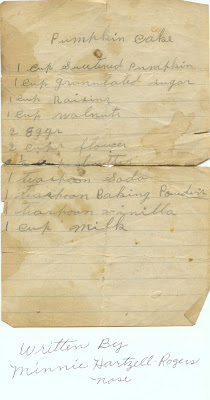 Pumpkin Cake
1 Cup Steewed Pumpkin
1 Cup granulated sugar
1 Cup Raisins
1 Cup walnuts
2 Eggs
2 Cups flower
1 teaspoon Soda
1 teaspoon Baking Powder
1 teaspoon vinilla
1 Cup Milk
Written By
Minnie Hartzell Rogers
nose